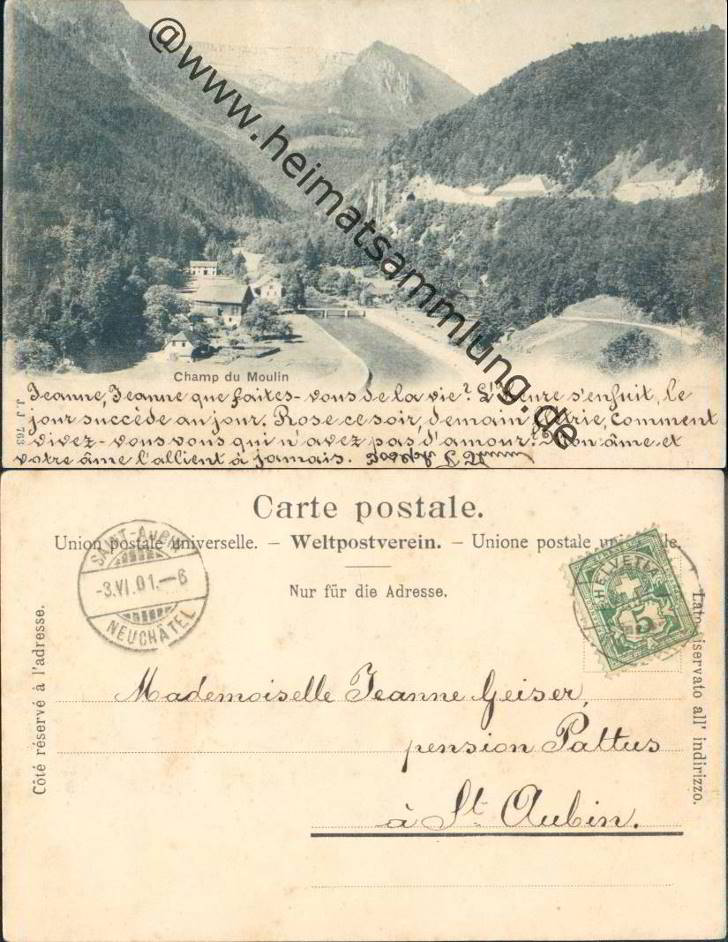 @www.heimatsammlung.de
Champ du Moulin
J. J. 763
Jeanne, Jeanne que faites-vous de la vie? L'Heure s'enfuit, le
jour succède au jour. Rose ce soir, demain flétrie, comment
vivez-vous vous qui n'avez pas d'amour? Mon âme et
votre âme l'allient à jamais.
Carte postale.
Union postale universelle. — Weltpostverein. — Unione postale universale.
Nur für die Adresse.
SAINT-AUBIN
-3.VI.01.-6
NEUCHÂTEL
HELVETIA
5
Côté réservé à l'adresse.
Lato riservato all' indirizzo.
Mademoiselle Jeanne Geiser,
pension Pattus
à St. Aubin.